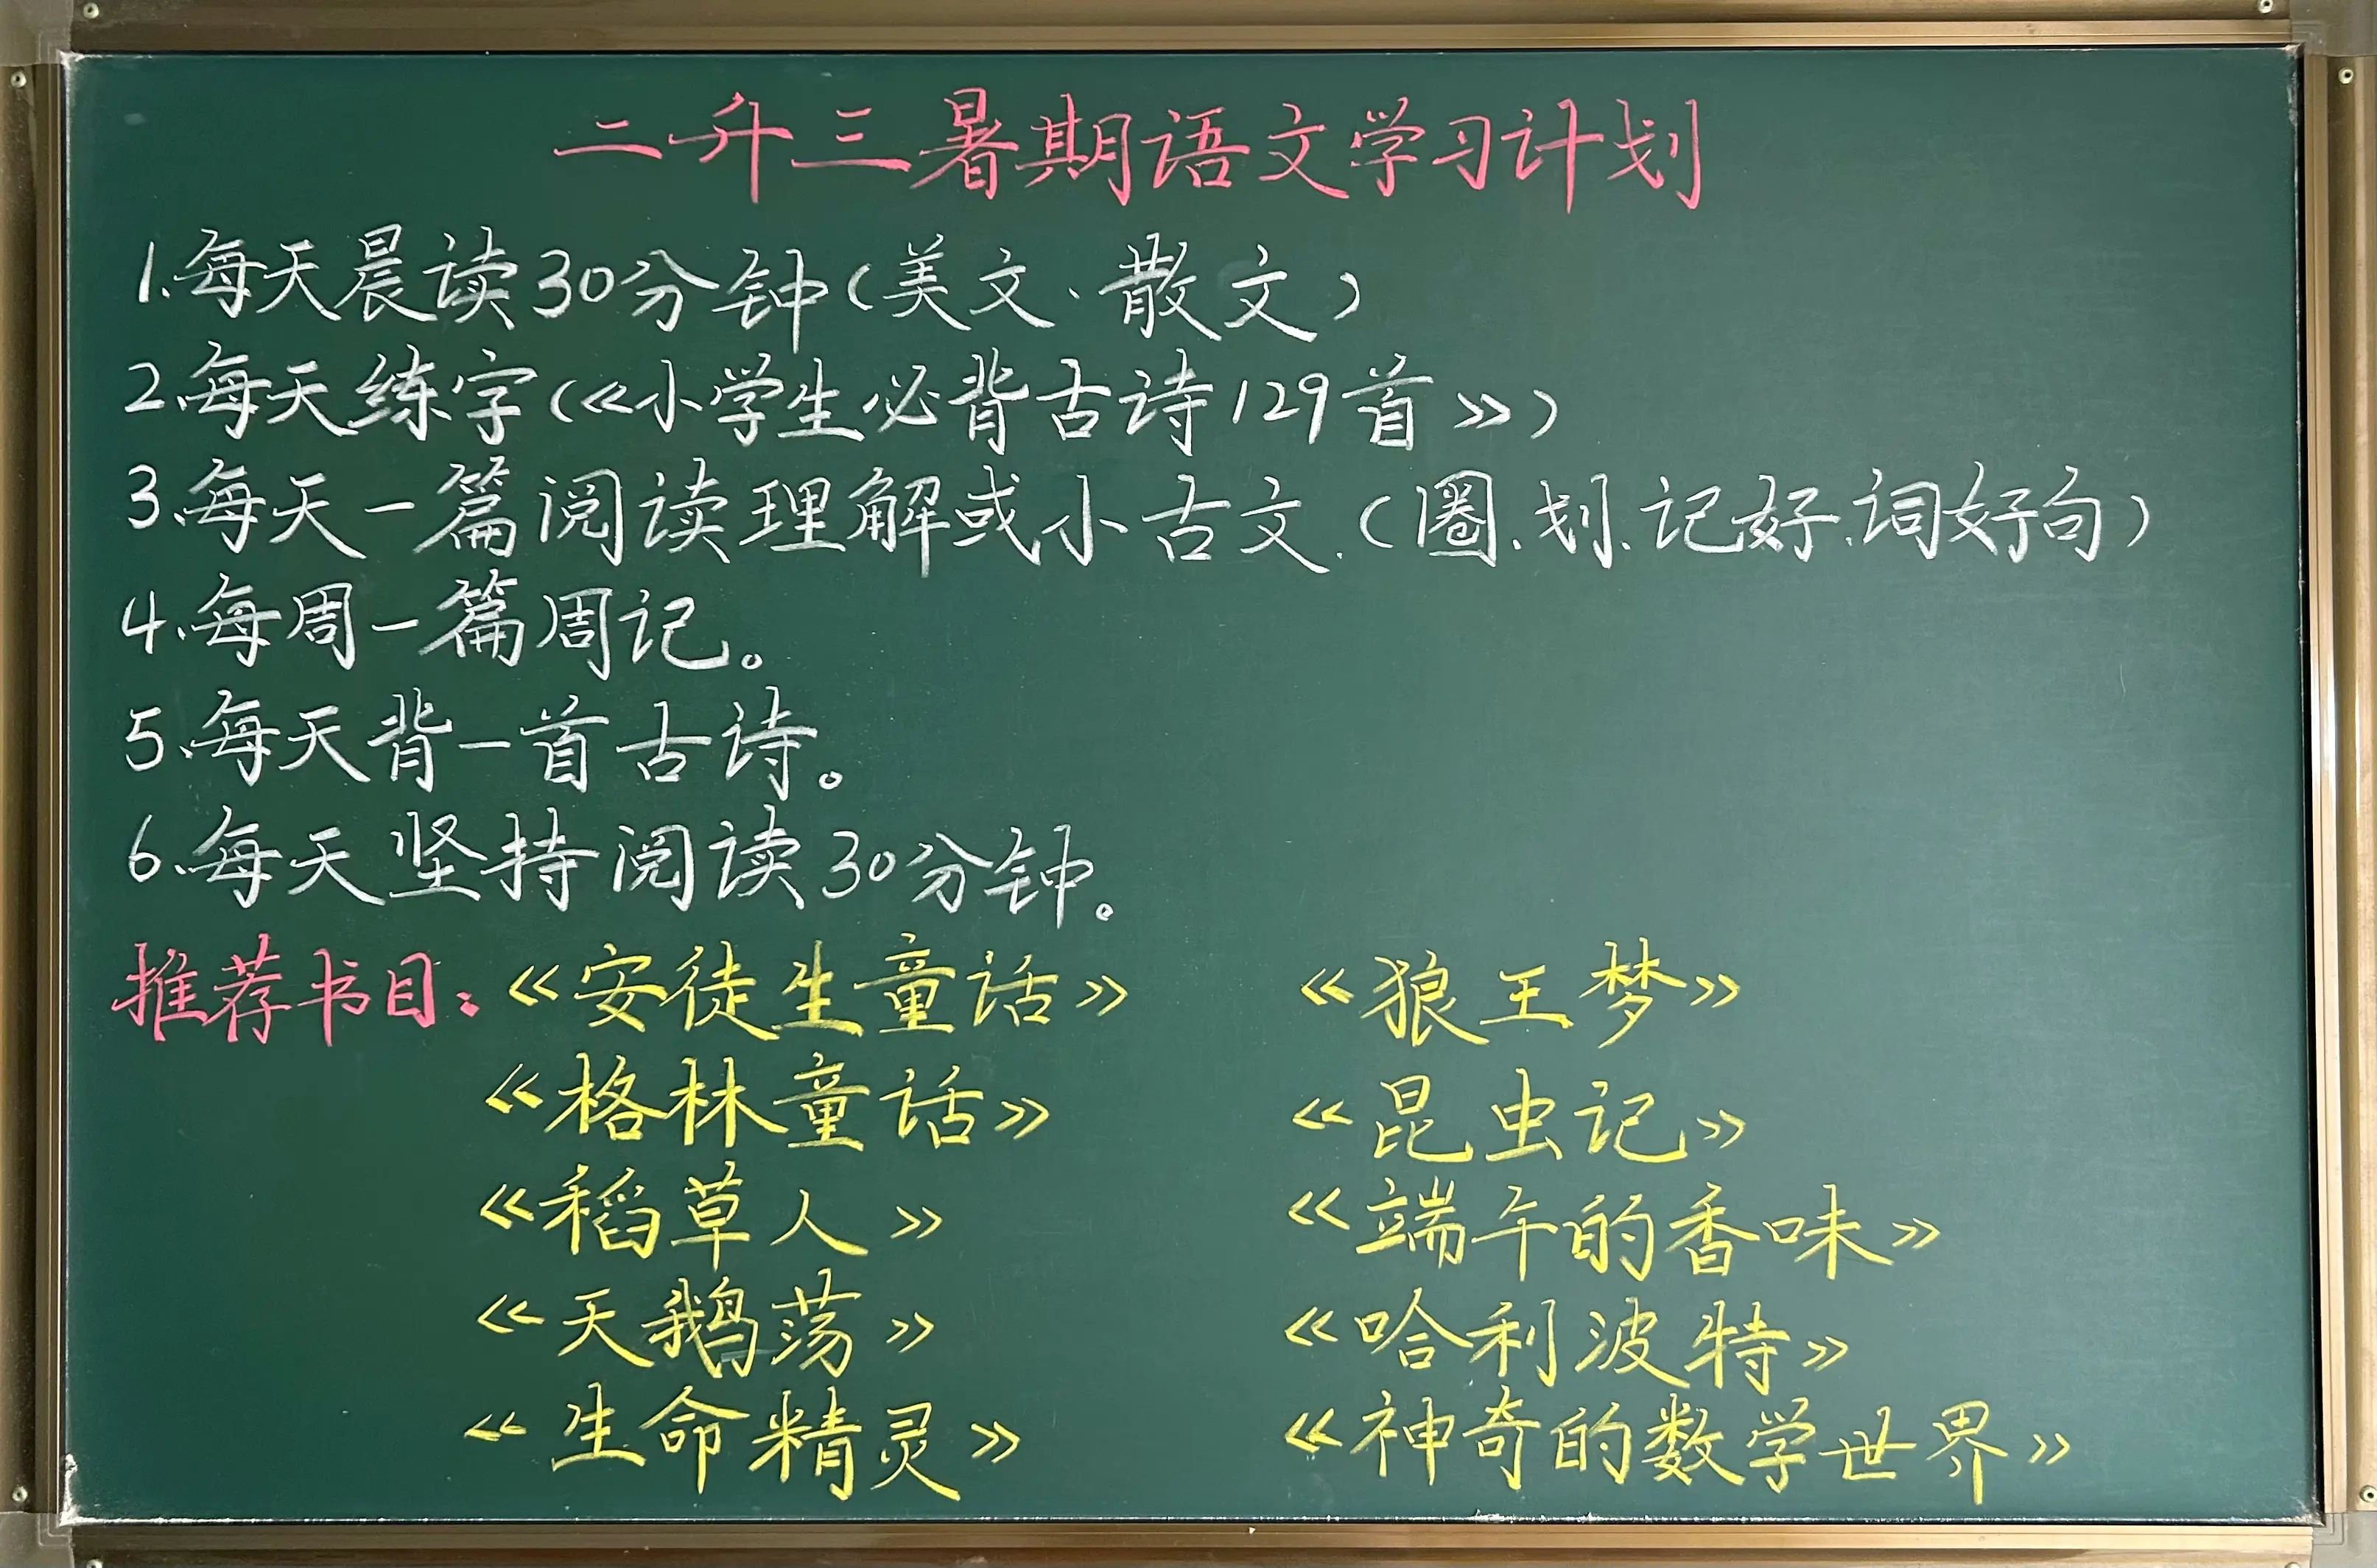 二升三暑期语文学习计划
1.每天晨读30分钟(美文、散文)
2.每天练字(《小学生必背古诗129首》)
3.每天一篇阅读理解或小古文.(圈、划、记好.词好句)
4.每周一篇周记。
5.每天背一首古诗。
6.每天坚持阅读30分钟。
推荐书目:《安徒生童话》 《狼王梦》
《格林童话》 《昆虫记》
《稻草人》 《端午的香味》
《天鹅荡》 《哈利波特》
《生命精灵》 《神奇的数学世界》